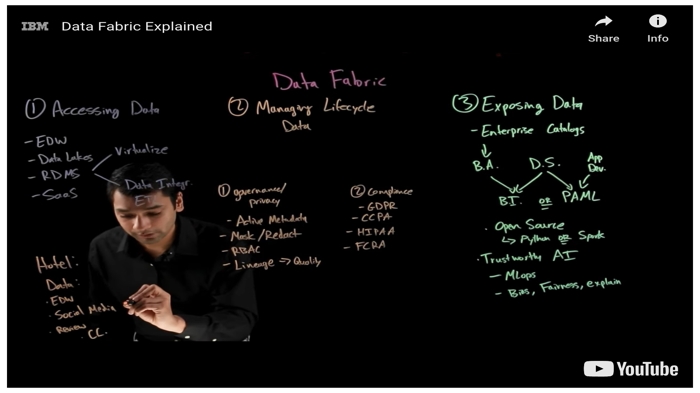 IBM Data Fabric Explained
Share
Info
Data Fabric
① Accessing Data
- EDW
- Data Lakes
- RDMS
- SaaS
Virtualize
Data Integr.
Hotel:
Data:
· EDW
· Social Media
· Review
· CC.
② Managing Lifecycle
Data
① governance/
privacy
- Active Metadata
- Mask/Redact
- RBAC
- Lineage => Quality
② Compliance
- GDPR
- CCPA
- HIPAA
- FCRA
③ Exposing Data
- Enterprise Catalogs
B.A.
D.S.
App
Dev.
BI. OR PAML
· Open Source
↳ Python OR Spark
· Trustworthy AI
- MLops
- Bias, Fairness, explain
YouTube